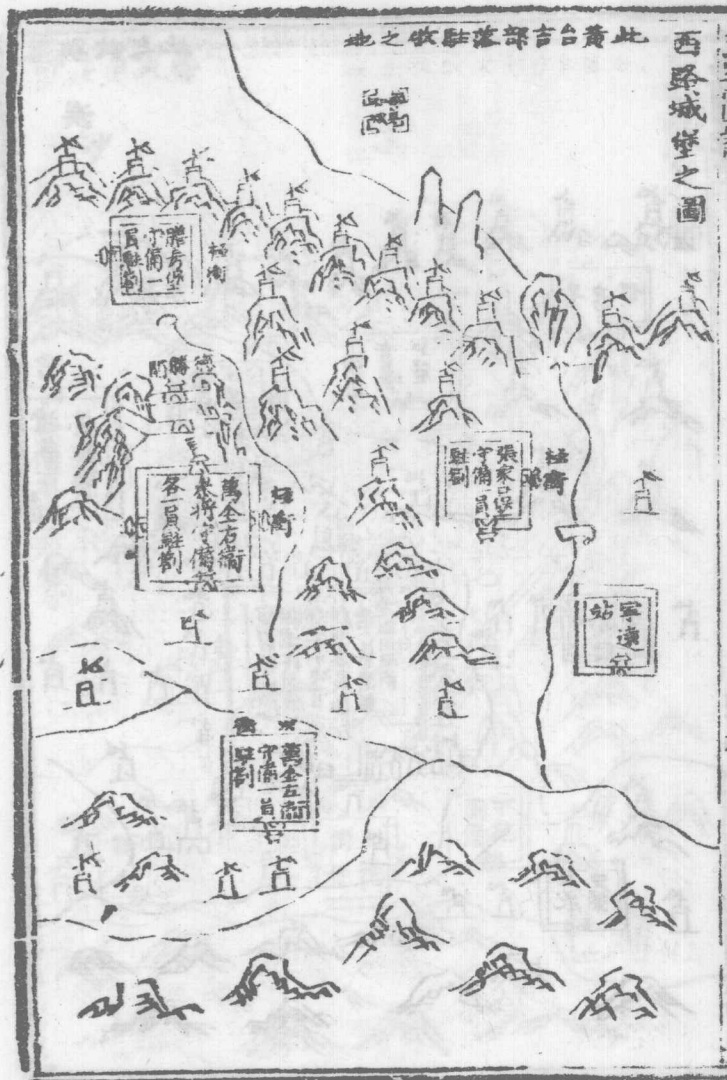 西路城堡之圖
此黃台吉部落駐牧之地
膳房堡
守備一
員駐劄
極衝
張家口堡
守備一員
駐劄
極衝
萬全右衛
參將守備
各一員駐劄
極衝
寧遠
站
萬全左衛
守備一員
駐劄